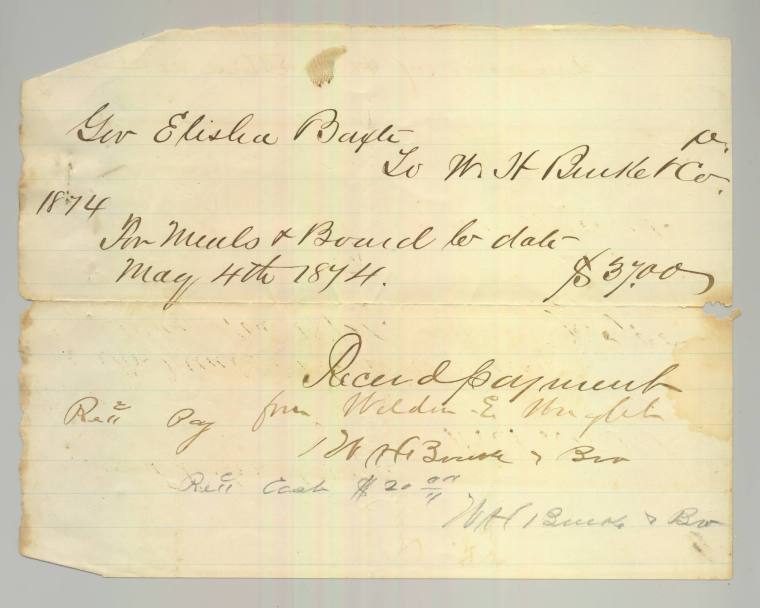 Gov Elisha Baxter
Dr.
To W. H. Burke & Co.
1874
For Meals & Board to date
May 4th 1874. $37.00
Received payment
Recd Pay from Weldon E. Wright
W H Burke & Bro
Recd Cash $20 00
W H Burke & Bro